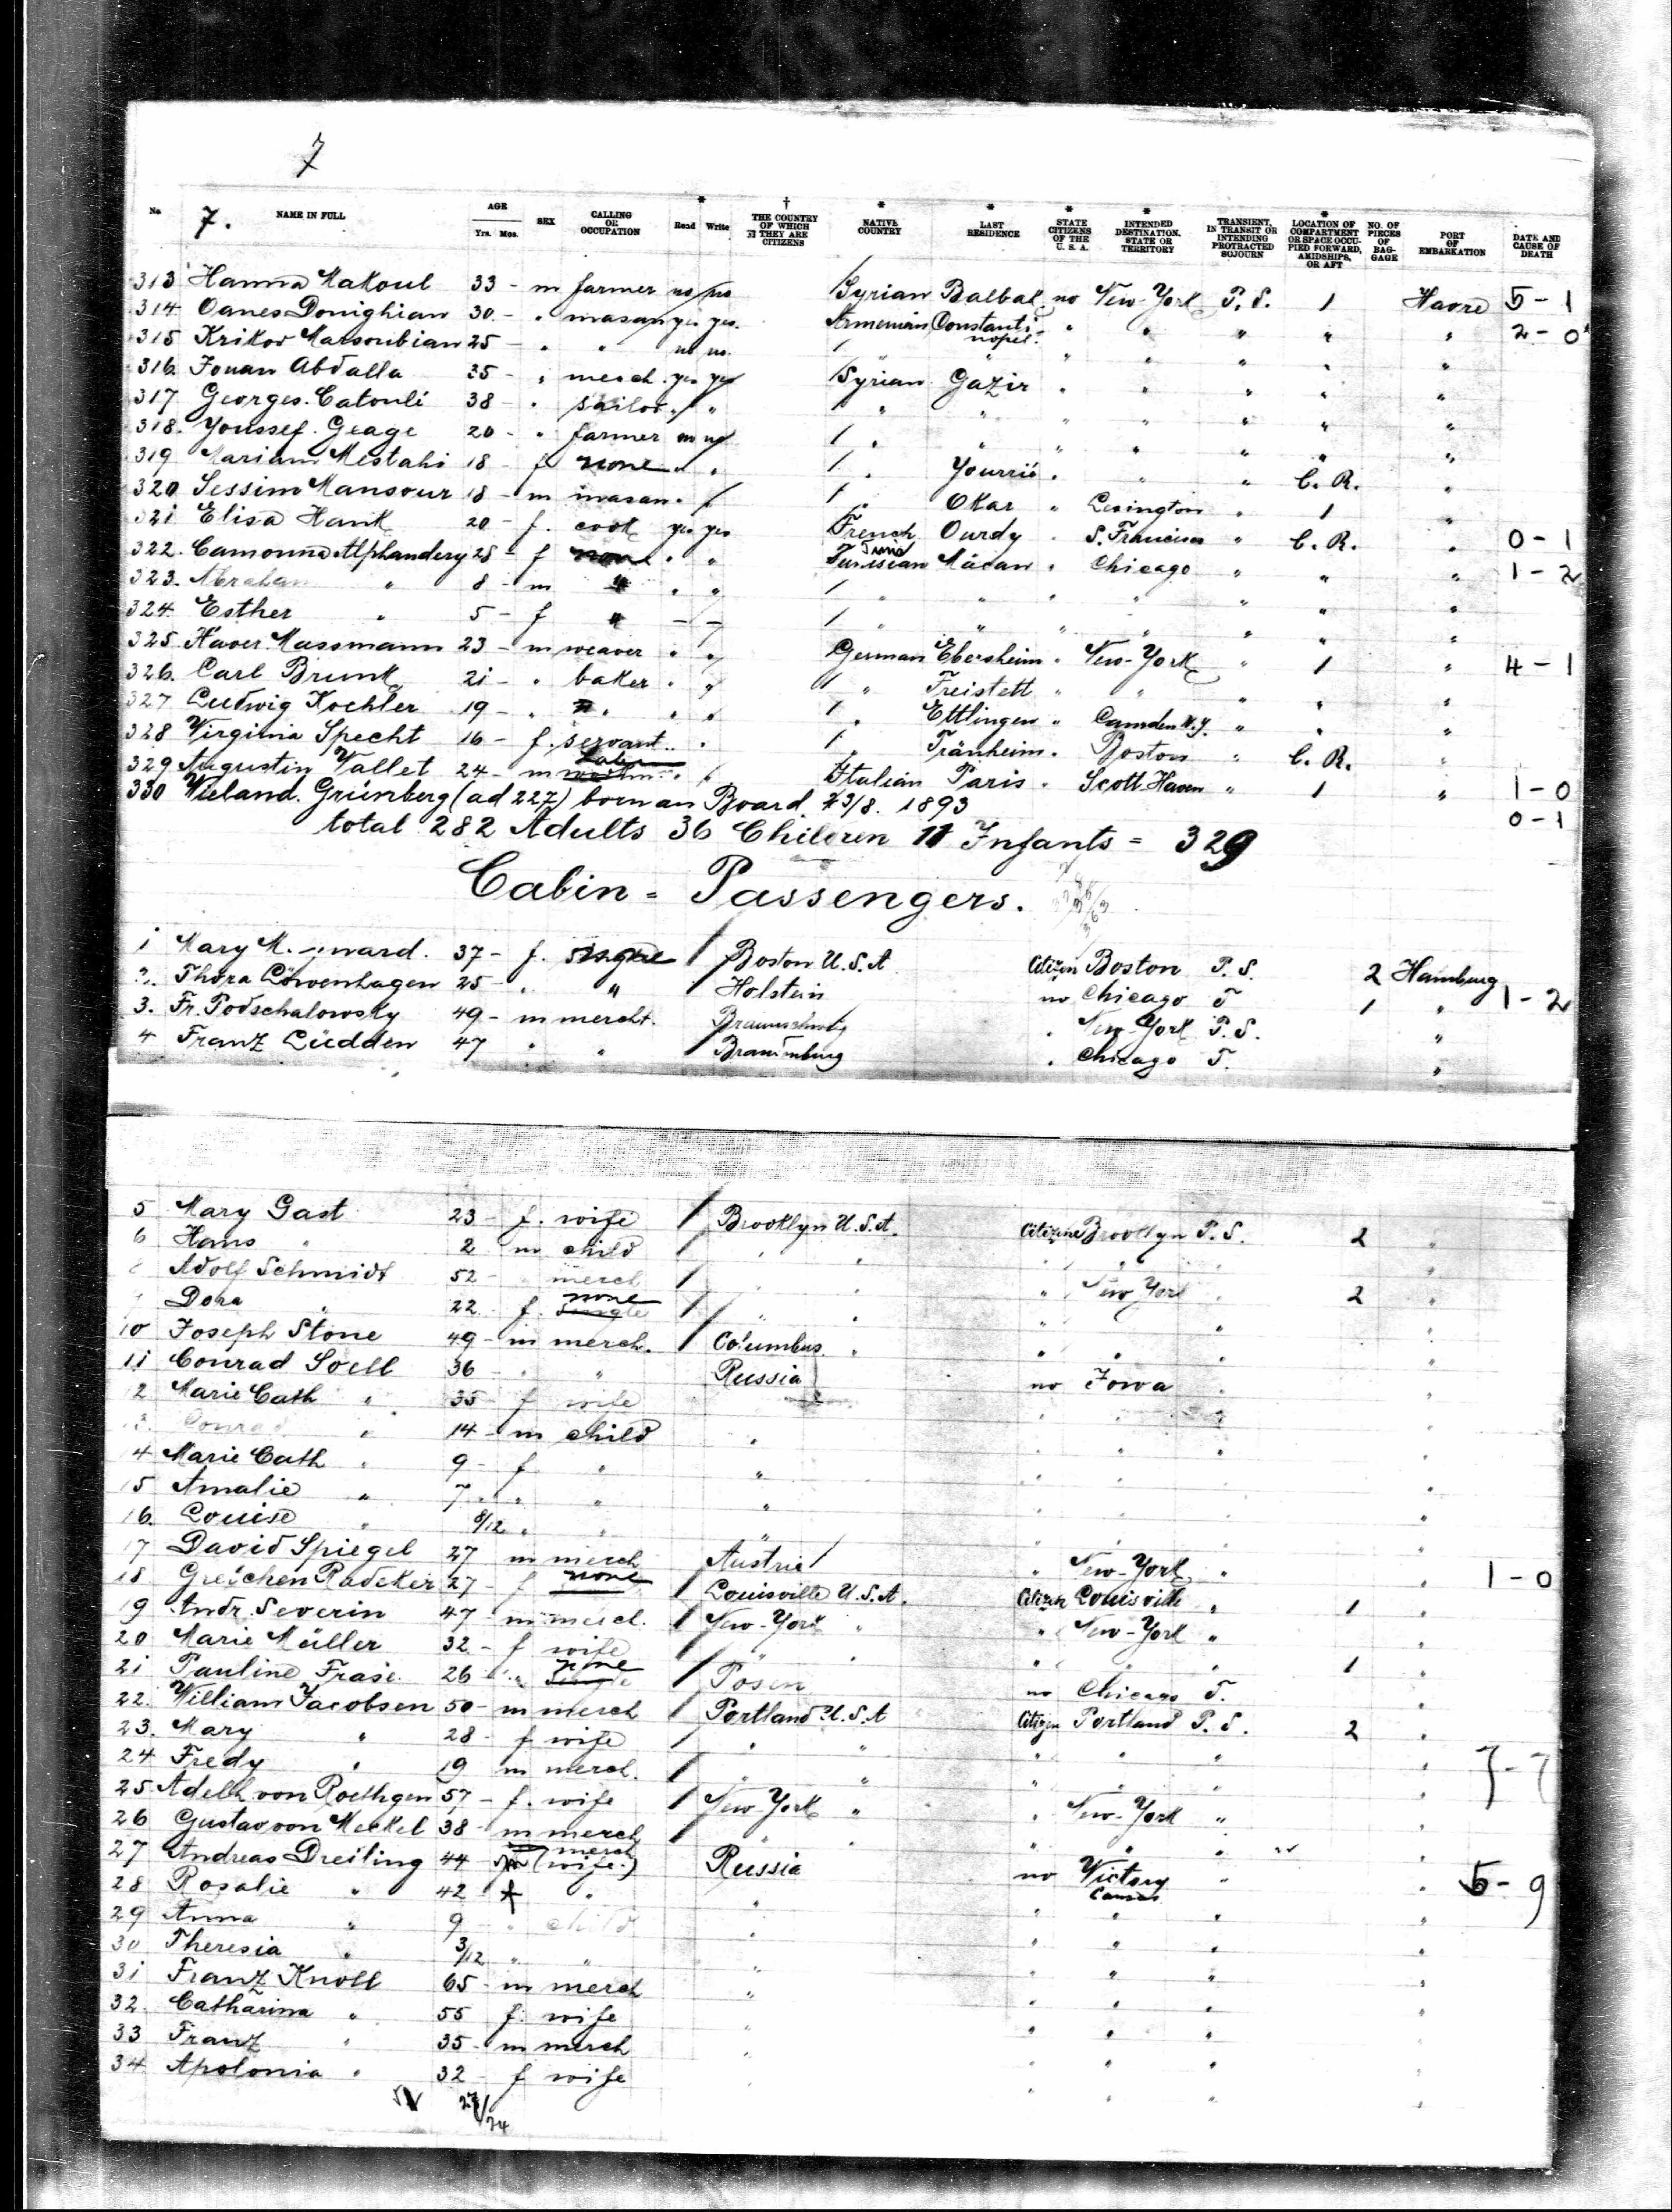 7
No. 7. NAME IN FULL AGE Yrs. Mos. SEX CALLING OR OCCUPATION * Read Write † THE COUNTRY OF WHICH THEY ARE CITIZENS * NATIVE COUNTRY * LAST RESIDENCE * STATE CITIZENS OF THE U. S. A. * INTENDED DESTINATION, STATE OR TERRITORY TRANSIENT, IN TRANSIT OR INTENDING PROTRACTED SOJOURN * LOCATION OF COMPARTMENT OR SPACE OCCUPIED FORWARD, AMIDSHIPS, OR AFT NO. OF PIECES OF BAGGAGE PORT OF EMBARKATION DATE AND CAUSE OF DEATH
313 Hanna Makoul 33 - m farmer no no Syrian Balbak no New-York P. S. 1 Havre 5 - 1
314 Oanes Donighian 30 - " masan yes yes. Armenian Constantinopel. " " " " " 2 - 0
315 Krikor Marsoubian 25 - " " no no. " " " " " " "
316. Jouan Abdalla 35 - " merch. yes yes Syrian Gazir " " " " "
317 Georges. Catouli 38 - " sailor " " " " " " " " "
318. Youssef. Geage 20 - " farmer no no " " " " " " "
319 Mariam Mestahi 18 - f none " " " " " " C. R. "
320 Sessim Mansour 18 - m masan " " " Okar " Lexington " 1 "
321 Elisa Hank 20 - f. cook yes yes French Ourdy " S. Francisco " C. R. " 0 - 1
322. Camouna Alphandery 28 - f none " " Tunissian " Chicago " " " 1 - 2
323. Abraham " 8 - m " " " " " " " " " "
324. Esther " 5 - f " - - " " " " " " "
325 Xaver Massmann 23 - m weaver " " German Ebersheim " New-York " 1 " 4 - 1
326. Carl Brunk 21 - " baker " " " Freistett " " " " "
327 Ludwig Kochler 19 - " " " " " Ettlingen " Camden N.Y. " " "
328 Virginia Specht 16 - f. servant " " " Tränheim " Boston " C. R. "
329 Augustin Vallet 24 - m " " Italian Paris " Scott-Haven " 1 " 1 - 0
330 Wieland. Grünberg (ad 227) born an Board. 23/8. 1893 0 - 1
total 282 Adults 36 Children 11 Infants = 329
Cabin = Passengers.
1 Mary M. 37 - f. single Boston U.S.A Citizen Boston P. S. 2 Hamburg
2. Thora Löwenhagen 25 - " " Holstein no Chicago T 1 " 1 - 2
3. Fr. Podschalowsky 49 - m mercht. Braunschweig " New-York P. S. "
4 Franz Lüdden 47 " " Brandenburg " Chicago T. "
5 Mary Gast 23 - f. wife Brooklyn U.S.A. Citizen Brooklyn P. S. 2 "
6 Hans " 2 m child " " " " " "
Adolf Schmidt 52 - " merch " " " New York " 2 "
Dora " 22 - f. none " " " " " "
10 Joseph Stone 49 - m merch. Columbus " " " " "
11 Conrad Soell 36 - " " Russia no Iowa " "
2 Marie Cath " 35 f wife " " " "
3. Conrad " 14 - m child " " " " "
4 Marie Cath " 9 - f " " " " "
15 Amalie " 7 - " " " " " "
16. Louise " 8/12 " " " " " "
17 David Spiegel 27 m merch Austria " New-York " " 1 - 0
18 Gretchen Radeker 27 - f none Louisville U.S.A. Citizen Louisville " 1 "
19 Andr. Severin 47 - m merch. New-York " " New-York " "
20 Marie Müller 32 - f wife " " " " " 1 "
21 Pauline Frase. 26 " none Posen no Chicago T. "
22. William Jacobsen 50 - m merch Portland U.S.A Citizen Portland P. S. 2 "
23. Mary " 28 - f wife " " " " " " 7 - 7
24 Fredy " 19 m merch. " " " " " "
25 Adelh. von Roethgen 57 - f. wife New-York " " New-York " "
26 Gustav von Merkel 38 - m merch " " " " " "
27 Andreas Dreiling 44 - merch (wife.) Russia no Victory Cansas " " 5 - 9
28 Rosalie " 42 f " " " " " "
29 Anna " 9 " child " " " " "
30 Theresia " 3/12 " " " " " " "
31 Franz Knoll 65 - m merch " " " " "
32. Catharina " 55 f. wife " " " " "
33 Franz " 35 - m merch " " " " "
34 Apolonia " 32 - f wife " " " " "